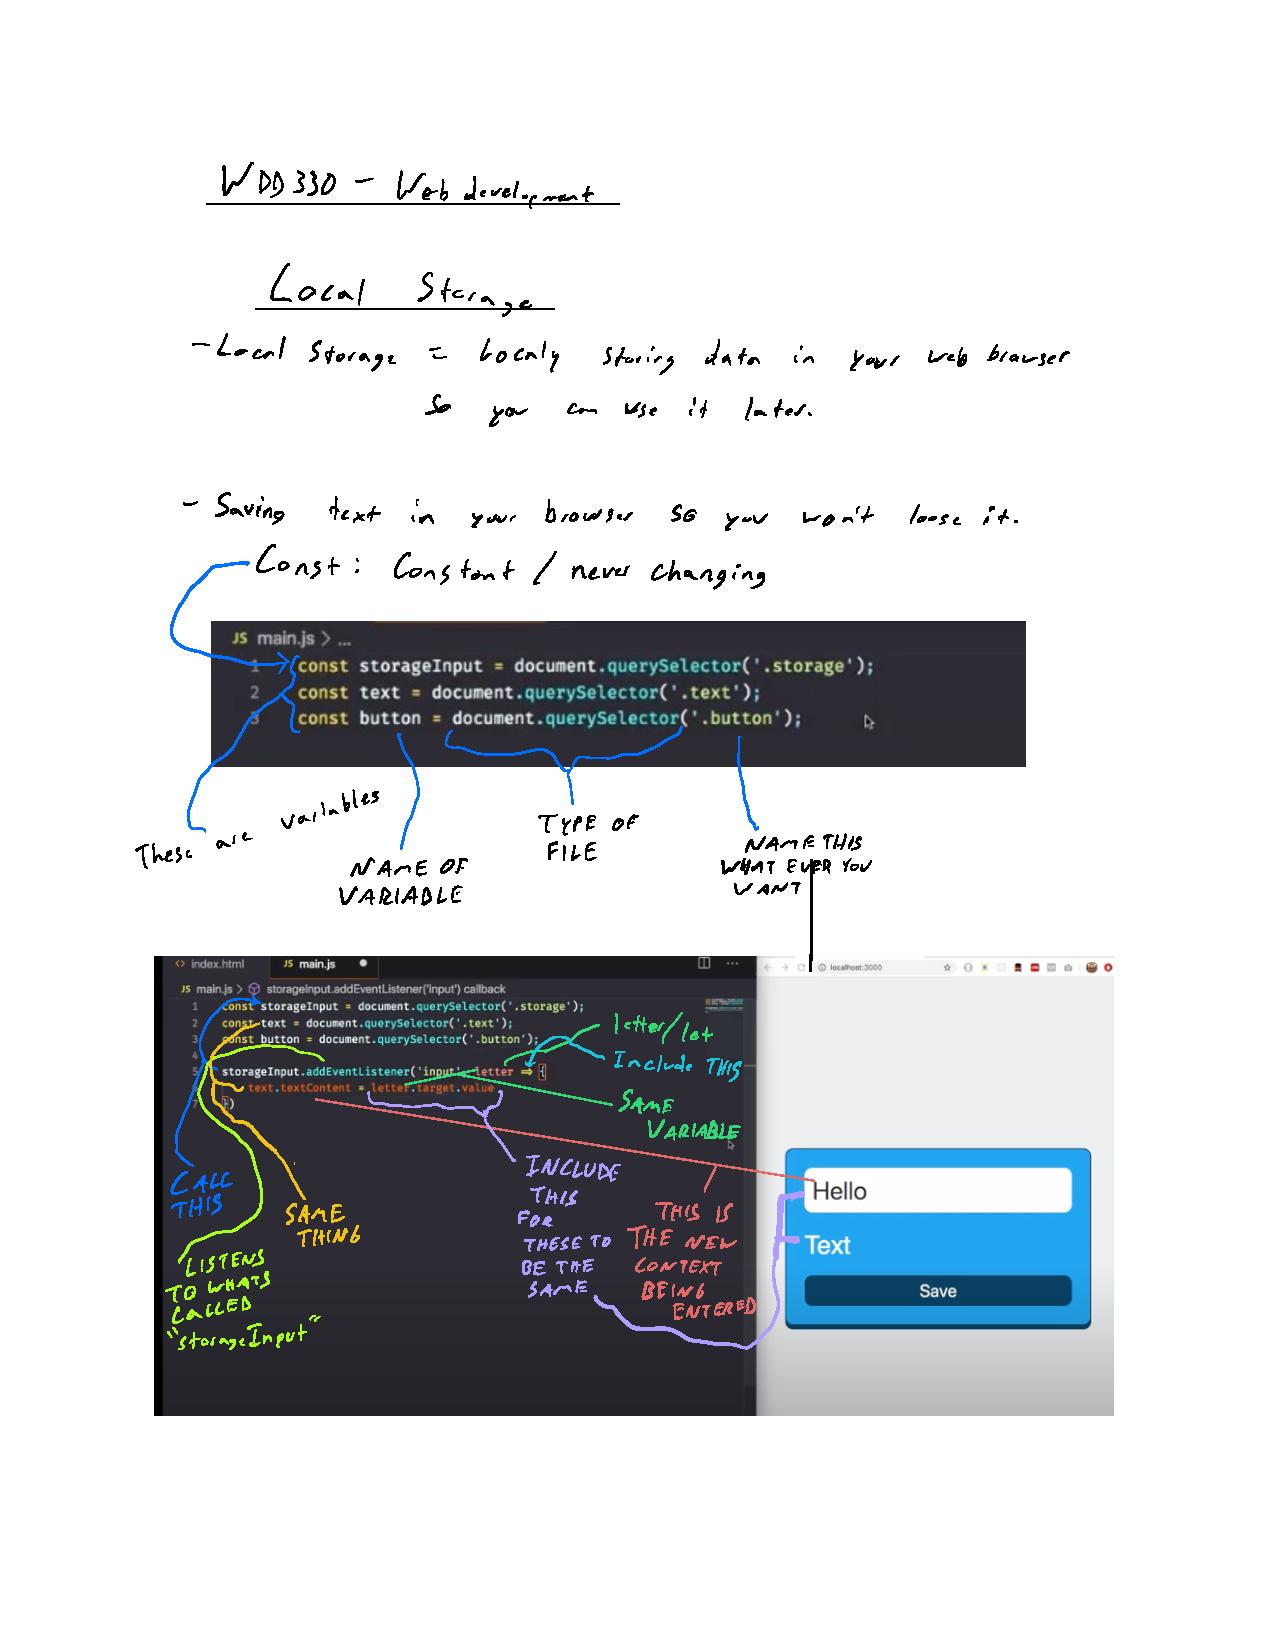 WDD330 - Web development
Local Storage
- Local Storage = Localy storing data in your web browser
so you can use it later.
- Saving text in your browser so you won't loose it.
Const: Constant / never changing
JS main.js > ...
1 const storageInput = document.querySelector('.storage');
2 const text = document.querySelector('.text');
3 const button = document.querySelector('.button');
These are variables
NAME OF
VARIABLE
TYPE OF
FILE
NAME THIS
WHAT EVER YOU
WANT
<> index.html JS main.js
localhost:3000
JS main.js > storageInput.addEventListener('input') callback
1 const storageInput = document.querySelector('.storage');
2 const text = document.querySelector('.text');
3 const button = document.querySelector('.button');
4
5 storageInput.addEventListener('input', letter => {
6 text.textContent = letter.target.value
7 })
letter/let
Include THIS
SAME
VARIABLE
CALL
THIS
SAME
THING
LISTENS
TO WHATS
CALLED
"storageInput"
INCLUDE
THIS
FOR
THESE TO
BE THE
SAME
THIS IS
THE NEW
CONTEXT
BEING
ENTERED
Hello
Text
Save